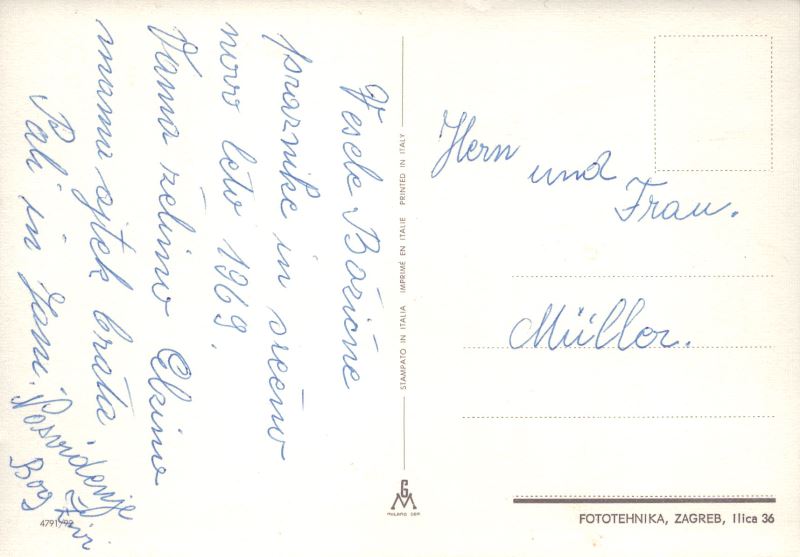 Vesele Božične
praznike in srečno
novo leto 1969.
Vama želimo
mama ojtek brata
in Jani.
Nasvidenje
Bog Živi
Hern
und
Frau.
Müller.
STAMPATO IN ITALIA IMPRIMÉ EN ITALIE PRINTED IN ITALY
GM
MILANO
4791/92
FOTOTEHNIKA, ZAGREB, Ilica 36